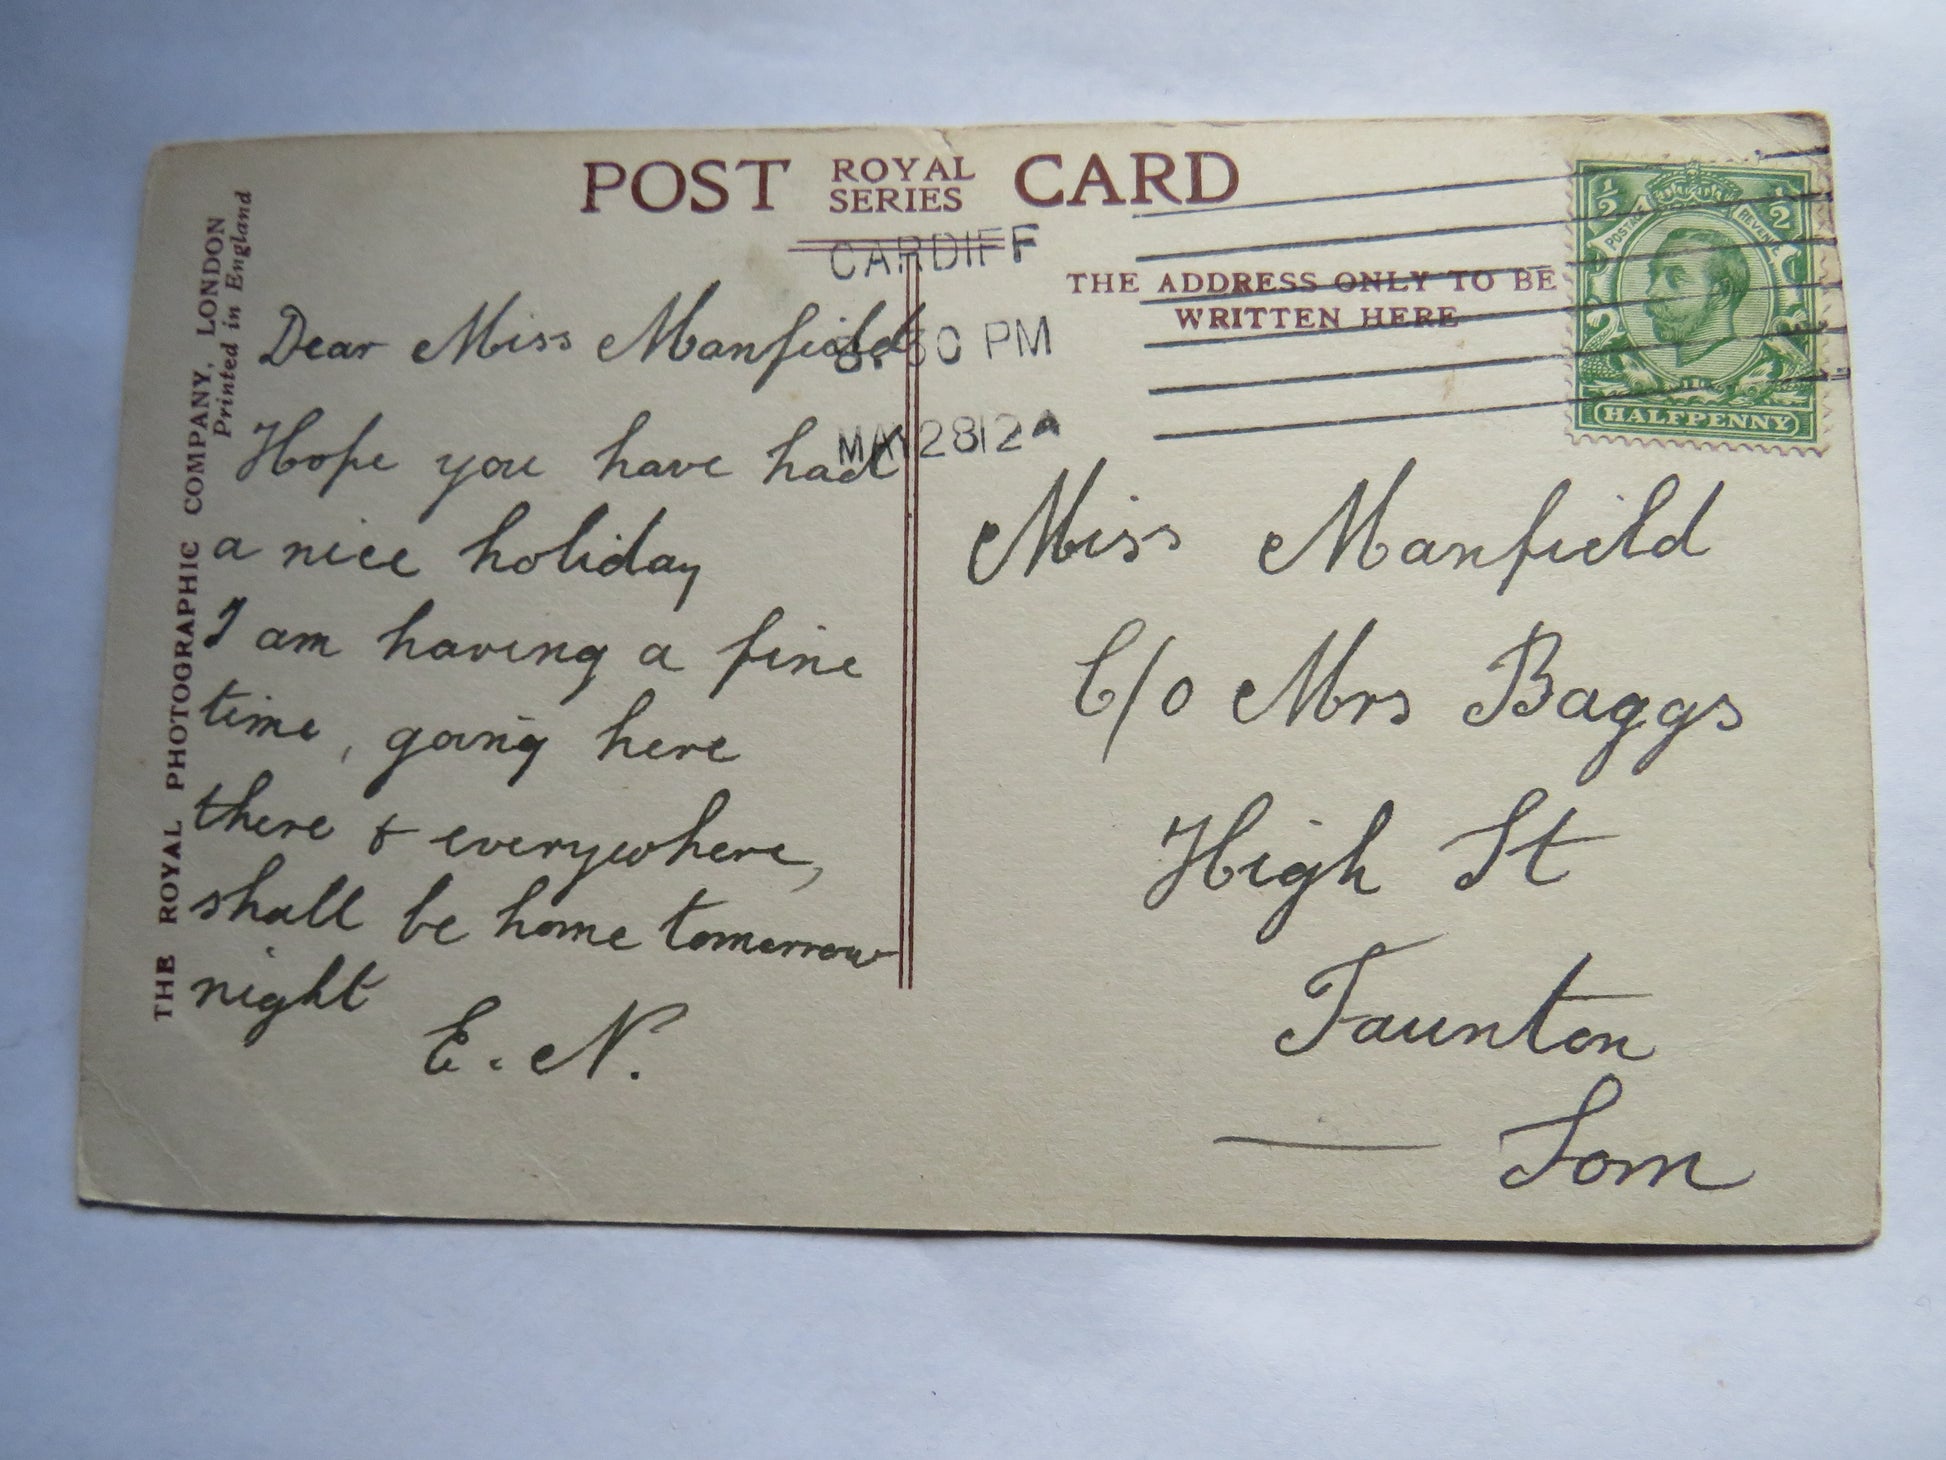 POST ROYAL SERIES CARD
THE ADDRESS ONLY TO BE
WRITTEN HERE
CARDIFF
30 PM
MAY 28 12
1/2 1/2
POSTAGE REVENUE
HALFPENNY
THE ROYAL PHOTOGRAPHIC COMPANY, LONDON
Printed in England
Dear Miss Manfield
Hope you have had
a nice holiday
I am having a fine
time, going here
there & everywhere,
shall be home tomorrow
night
E. N.
Miss Manfield
C/o Mrs Baggs
High St
Taunton
Som